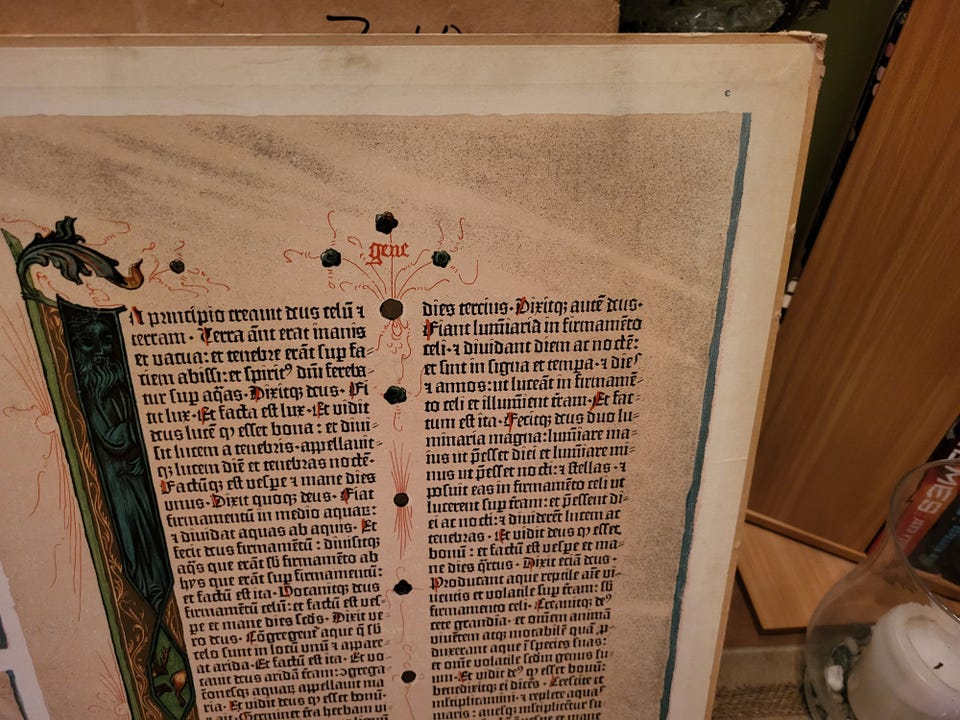 gene
A principio creauit deus celū ⁊
terram· Terra aūt erat inanis
et vacua: et tenebre erāt sup fa⸗
ciem abissi: et spiritꝰ dn̄i fereba⸗
tur sup aq̄as· Dixitqꝫ deus· Fi
at lux· Et facta est lux· Et vidit
deus lucē ꝙ esset bona: et diui⸗
sit lucem a tenebris· appellauit⸗
qꝫ lucem diē et tenebras noctē·
Factūqꝫ est vespe ⁊ mane dies
vnus· Dixit quoqꝫ deus· Fiat
firmamentū in medio aquaꝝ:
⁊ diuidat aquas ab aquis· Et
fecit deus firmamētū: diuisitqꝫ
aq̄s que erāt sb̄ firmamēto ab
hijs que erāt sup firmamentū:
et factū est ita· Vocauitqꝫ deus
firmamētū celū: et factū est vef⸗
pe et mane dies secd̄s· Dixit ve⸗
ro deus· Cōgregent aque q̄ sb̄
celo sunt in locū vnū ⁊ appare⸗
at arida· Et factū est ita· Et vo⸗
cauit deus aridā terrā: ɔgrega⸗
cōnesqꝫ aquaꝝ appellauit ma
ria· Et vidit deus ꝙ esset bonū·
⁊ ait· Germinet t̄ra herbam vi⸗
dies tercius· Dixitqꝫ autē deus·
Fiant luminaria in firmamēto
celi· ⁊ diuidant diem ac noctē:
et sint in signa et tempa· ⁊ dies
⁊ annos: ut luceāt in firmamē⸗
to celi et illuminent t̄ram· Et fac⸗
tum est ita· Fecitqꝫ deus duo lu⸗
minaria magna: luminare ma⸗
ius ut p̄esset diei et luminare mi⸗
nus ut p̄esset nocti: ⁊ stellas· ⁊
posuit eas in firmamēto celi ut
lucerent sup t̄ram: et p̄essent di⸗
ei ac nocti: ⁊ diuiderēt lucem ac
tenebras· Et vidit deus ꝙ esset
bonū: et factū est vespe et ma⸗
ne dies q̄rtus· Dixit eciā deus·
Producant aque reptile aīe vi⸗
uentis et volatile sup t̄ram: sb̄
firmamento celi· Creauitqꝫ deꝰ
cete grandia· et omem animā
viuētem atqꝫ motabilē quā ꝓ⸗
duxerant aque ī species suas:
et omē volatile secd̄m genus su⸗
um· Et vidit deꝰ ꝙ esset bonū:
benedixitqꝫ ei dicēs· Crescite et
multiplicamini· ⁊ replete aquas
maris: auesqꝫ multiplicent